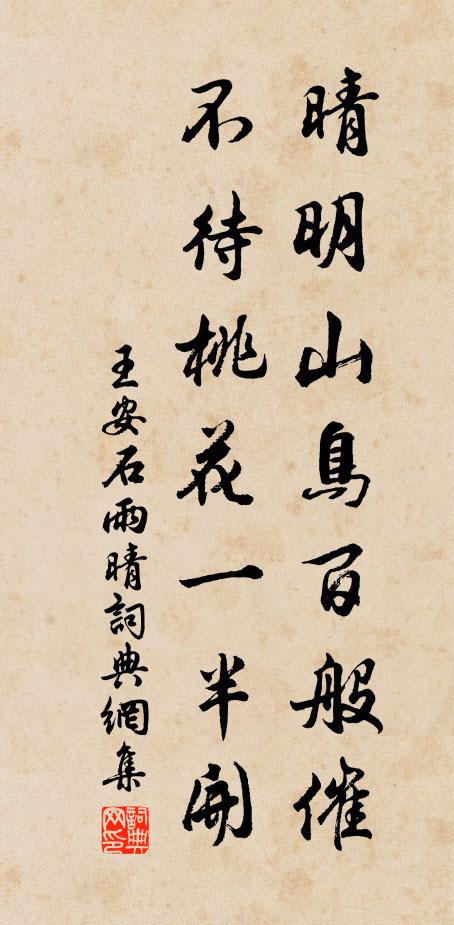 晴明山鳥百般催
不待桃花一半開
王安石雨晴詞典網集
詞典网印